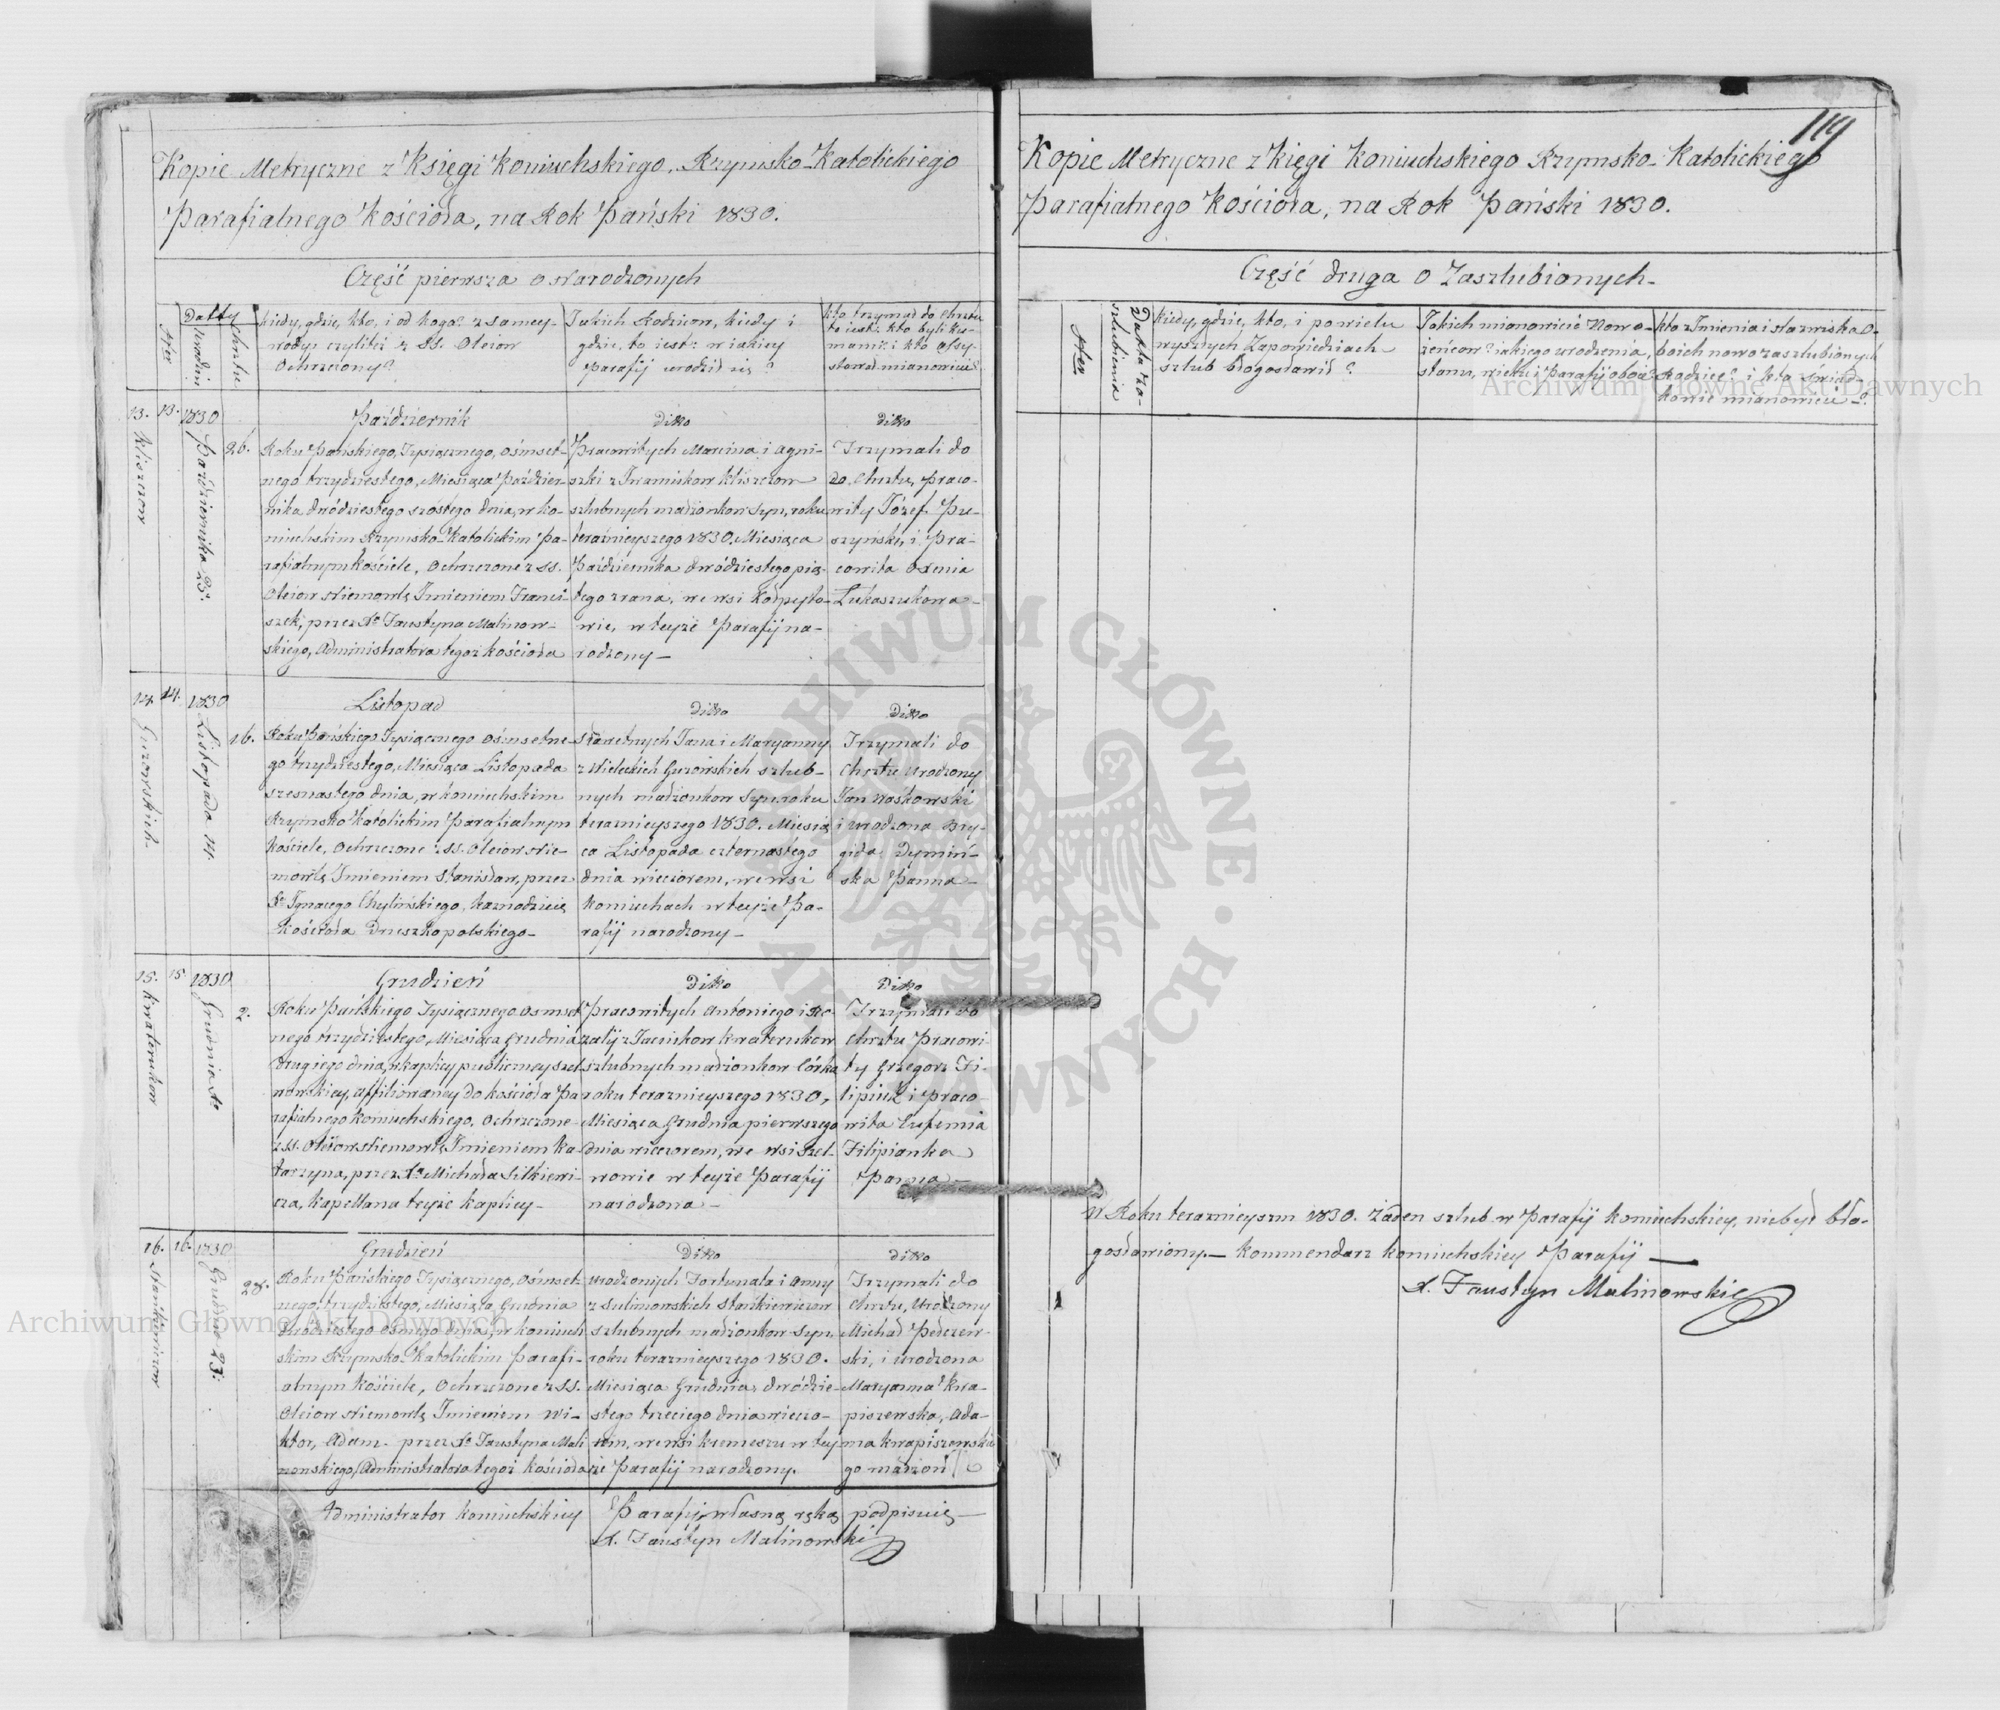 Kopie Metryczne z Księgi Koniuchskiego, Rzymsko-Katolickiego
Parafialnego Kościoła, na Rok Pański 1830.
Część pierwsza o Narodzonych
Ner
Datty
Urodzin
Chrztu
kiedy, gdzie, kto, i od kogo? z samey-
wody czyliteż z SS. Oleiow
Ochrzczony?
Jakich Rodzicow, kiedy i
gdzie, to iest: w iakiey
Parafij urodził się?
kto trzymał do Chrztu
to iest: kto byli ku-
mami: i kto assy-
stował mianowicie?
13. 13. 1830
Kliszczow
Października 25.
26.
Październik
Roku Pańskiego, Tysiącznego, Ośmset-
nego trzydziestego, Miesiąca Paździer-
nika dwódziestego szóstego dnia, w ko-
niuchskim Rzymsko-Katolickim Pa-
rafialnym kościele, Ochrzczone z SS.
Oleiow Niemowlę Imieniem Franci-
szek, przez Xa Faustyna Malinow-
skiego, Administratora tegoż kościoła
ditto
Pracowitych Marcina i Agni-
szki z Iwaniukow Kliszczow
szlubnych małżonkow Syn, roku
teraźnieyszego 1830. Miesiąca
Października dwódziestego pią-
tego zrana, we wsi Kołpyto-
wie, w teyże Parafij na-
rodzony —
ditto
Trzymali do
do Chrztu, Praco-
wity Józef Pu-
szyński, i Pra-
cowita Oxenia
Łukaszukowa —
14. 14. 1830
Guzowskich.
Listopada 14.
16.
Listopad
Roku Pańskiego Tysiącznego Ośmsetne-
go trzydziestego, Miesiąca Listopada
szesnastego dnia, w koniuchskim
Rzymsko Katolickim Parafialnym
kościele, Ochrzczone z SS. Oleiow Nie-
mowlę Imieniem Stanisław, przez
Xa Ignacego Chylińskiego, Kaznodzieię
Kościoła Druszkopolskiego —
Ditto
Sławetnych Jana i Maryanny
z Wieleckich Guzowskich szlub-
nych małżonkow Syn roku
teraznieyszego 1830. Miesią
ca Listopada czternastego
dnia wieczorem, we wsi
Koniuchach w teyże Pa-
rafij narodzony —
Ditto
Trzymali do
Chrztu Urodzony
Jan Nośkowski
i urodzona Bry-
gida Dymiń-
ska Panna —
15. 15. 1830
Kwaterukow
Grudnia 1o
2.
Grudzień
Roku Pańskiego Tysiącznego Osmset
nego trzydziestego, Miesiąca Grudnia
drugiego dnia, w kaplicy publiczney szel
wowskiey, affiliowaney do kościoła Pa
rafialnego koniuchskiego. Ochrzczone
z SS. Oleiow Niemowlę Imieniem Ka
tarzyna, przez Xa Michała Sitkiewi-
cza, Kapellana teyże kaplicy —
Ditto
Pracowitych Antoniego i Ro-
zalij z Jaciukow Kwaterukow
szlubnych małżonkow Córka
roku teraznieyszego 1830,
Miesiąca Grudnia pierwszego
dnia wieczorem, we wsi Szel-
wowie w teyże Parafij
narodzona —
Ditto
Trzymali do
Chrztu Pracowi-
ty Grzegorz Fi-
lipiuk i Praco-
wita Eufemia
Filipianka
Panna —
16. 16. 1830
Stankiewiczow
Grudnia 23.
28.
Grudzień
Roku Pańskiego Tysiącznego, Ośmset
nego trzydziestego, Miesiąca Grudnia
dwódziestego osmego dnia, w koniuch
skim Rzymsko Katolickim Parafi-
alnym kościele, Ochrzczone z SS.
Oleiow Niemowlę Imieniem Wi-
ktor, Adam. przez Xa Faustyna Mali
nowskiego, Administratora tegoż kościoła
Ditto
Urodzonych Fortunata i Anny
z Sulimowskich Stankiewiczow
szlubnych małżonkow Syn,
roku teraznieyszego 1830.
Miesiąca Grudnia, dwódzie-
stego trzeciego dnia wieczo-
rem, we wsi Krzemeszu w tey
że Parafij narodzony.
ditto
Trzymali do
Chrztu, Urodzony
Michał Pełczew-
ski, i urodzona
Maryanna Kwa-
piszewska, Ada-
ma Kwapiszewskie
go małżon
Administrator Koniuchskiey Parafij, własną ręką podpisuię —
X. Faustyn Malinowski
119
Kopie Metryczne z Kięgi Koniuchskiego Rzymsko-Katolickiego
Parafialnego Kościoła, na Rok Pański 1830.
Część druga o Zaszlubionych —
Ner
Datta za-
szlubienia
kiedy, gdzie, kto, i po wielu
wyszłych Zapowiedziach
szlub błogosławił?
Jakich mianowicie Nowo-
żeńcow? iakiego urodzenia,
stanu, wieku i Parafij oboie?
kto z Imienia i Nazwiska o-
boich nowozaszlubionych
Rodzice? i kto świad-
kowie mianowicie —?
W Roku teraznieyszm 1830. żaden szlub w Parafij Koniuchskiey, niebył bło-
gosławiony. — Kommendarz koniuchskiey Parafij —
X. Faustyn Malinowski
Archiwum Główne Akt Dawnych
Archiwum Główne Akt Dawnych
ARCHIWUM GŁÓWNE · AKT DAWNYCH ·